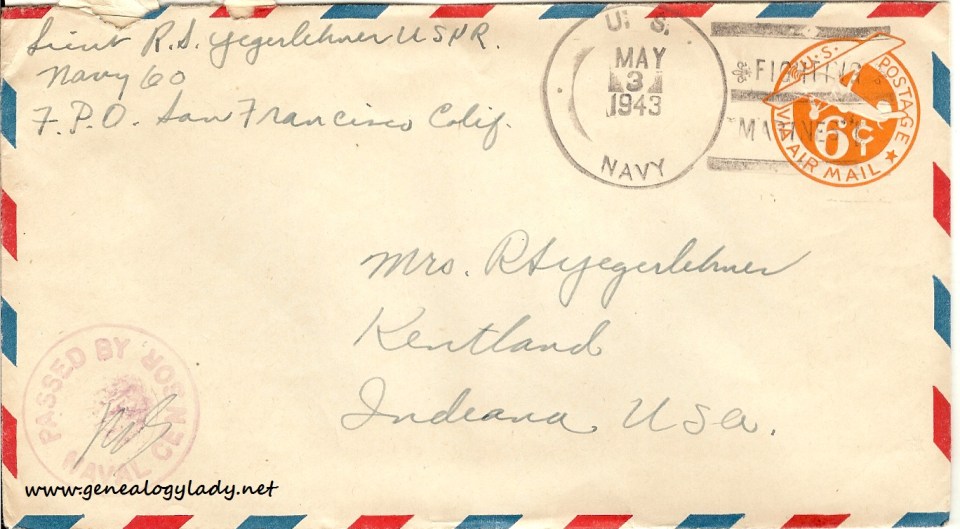 Lieut R.S. Yegerlehner USNR.
Navy 60
F.P.O. San Francisco Calif.
U. S.
MAY
3
1943
NAVY
FIGHTING
MARINES
U.S. POSTAGE
6¢
VIA AIR MAIL
Mrs. RS Yegerlehner
Kentland
Indiana, USA.
PASSED BY
NAVAL CENSOR
www.genealogylady.net